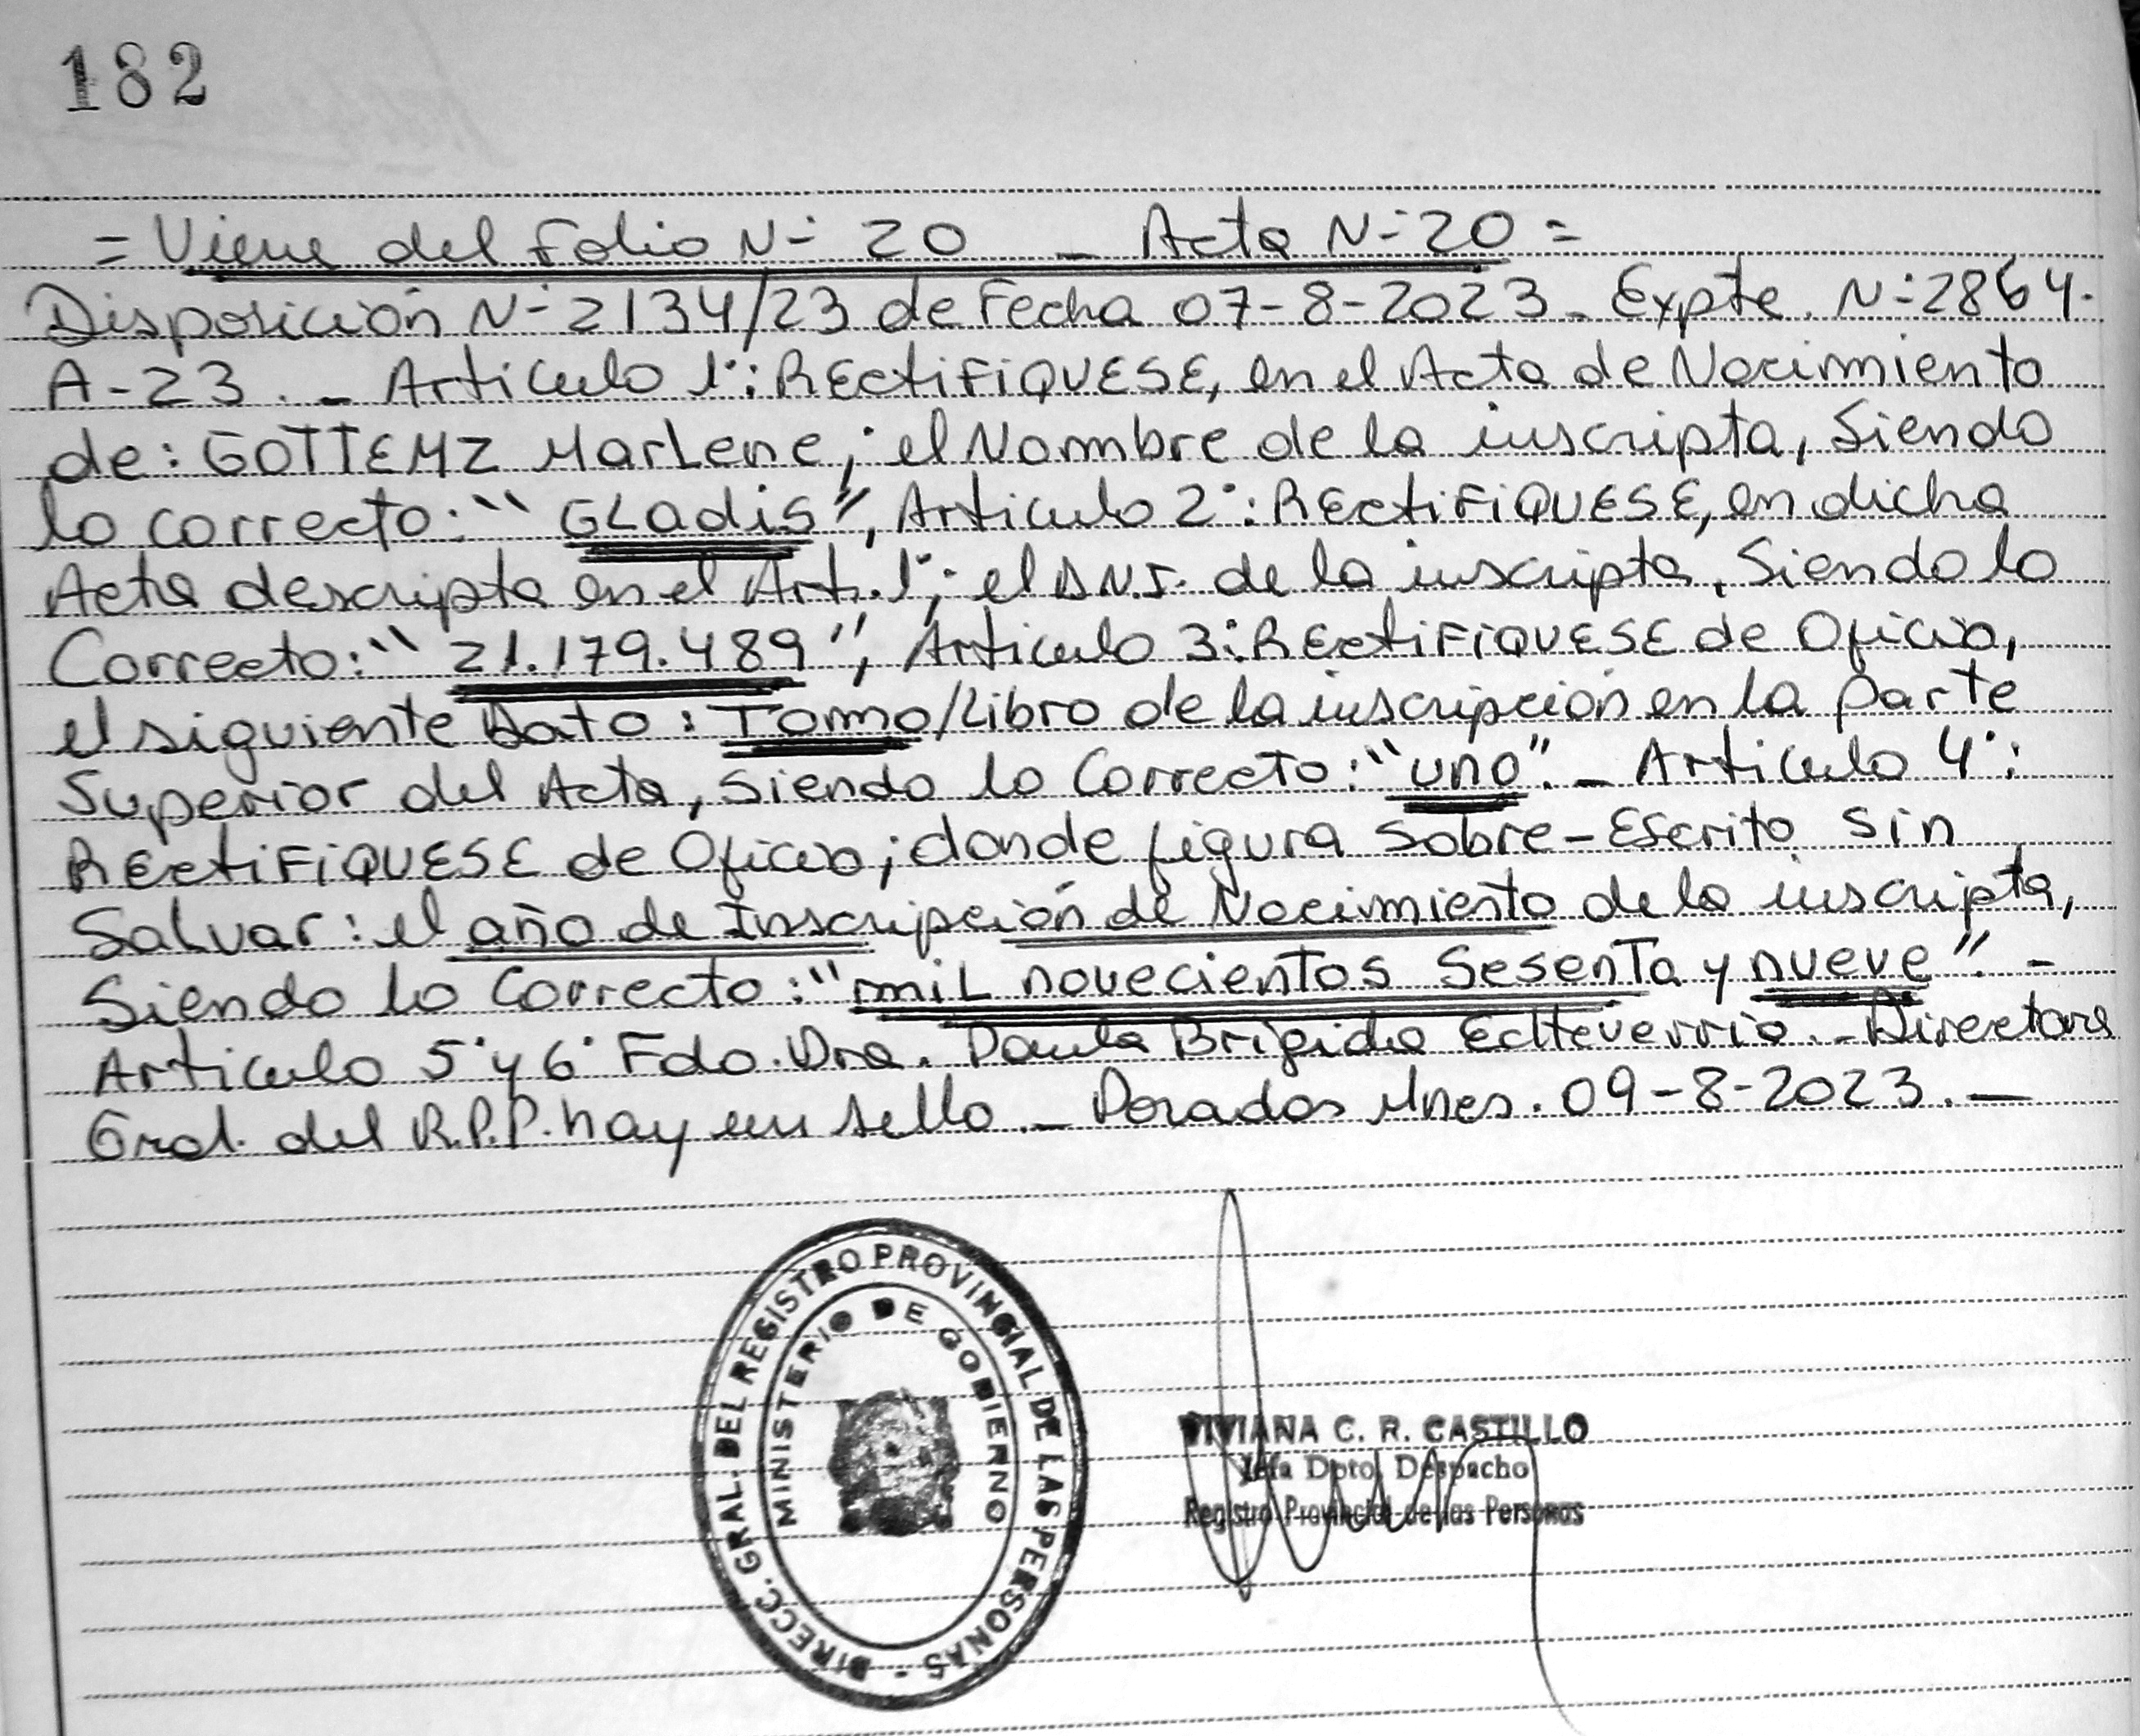 182
= Viene del Folio N° 20 _ Acta N° 20 =
Disposición N° 2134/23 de Fecha 07-8-2023_ Expte. N° 2864-
A-23._ Artículo 1°: RECtiFiQUESE, en el Acta de Nacimiento
de: GOTTEMZ Marlene; el Nombre de la inscripta, Siendo
lo correcto: "GLadis", Articulo 2°: RECtiFiQUESE, en dicha
Acta descripta en el Art. 1°; el D.N.I. de la inscripta, Siendo lo
Correcto: "21.179.489", Articulo 3: RECtiFiQUESE de Oficio,
el siguiente Dato: Tomo/Libro de la inscripción en la parte
Superior del Acta, siendo lo Correcto: "uno"._ Articulo 4°:
RECtiFiQUESE de Oficio; donde figura Sobre-Escrito Sin
Salvar: el año de Inscripción de Nacimiento de la inscripta,
Siendo lo Correcto: "miL novecientos Sesenta y nueve".-
Articulo 5° y 6° Fdo. Dra. Paula Brigida Echeverria._ Directora
Gral. del R.P.P. hay un sello._ Posadas Mnes. 09-8-2023._
DIRECC. GRAL. DEL REGISTRO PROVINCIAL DE LAS PERSONAS -
MINISTERIO DE GOBIERNO
VIVIANA C. R. CASTILLO
Jefa Dpto. Despacho
Registro Provincial de las Personas